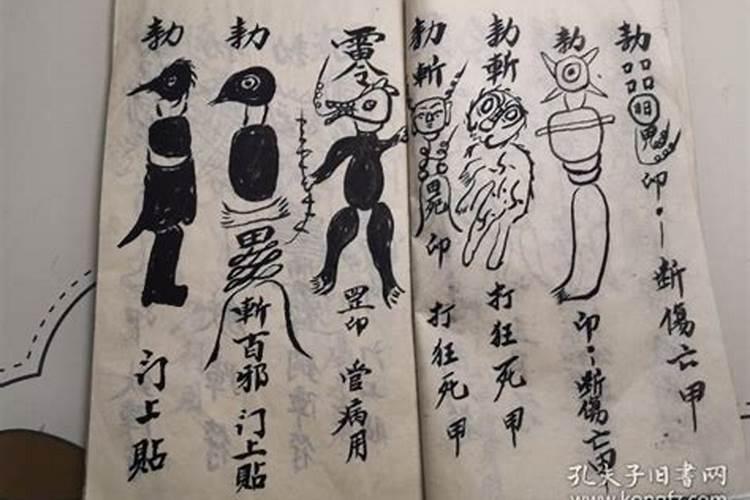 勅 鬼 印 断傷亡甲
勅 印 断傷亡甲
勅斬 打狂死甲
勅斬 印 打狂死甲
雷令 罡印 當病用
勅 斬百邪 门上貼
勅 门上貼
孔夫子旧书网